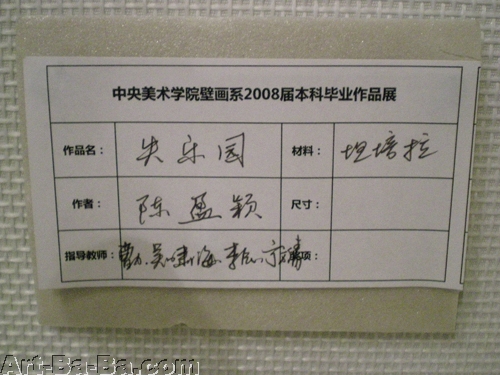 中央美术学院壁画系2008届本科毕业作品展
作品名： 失乐园 材料： 坦培拉
作者： 陈盈颖 尺寸：
指导教师：
Art-Ba-Ba.com